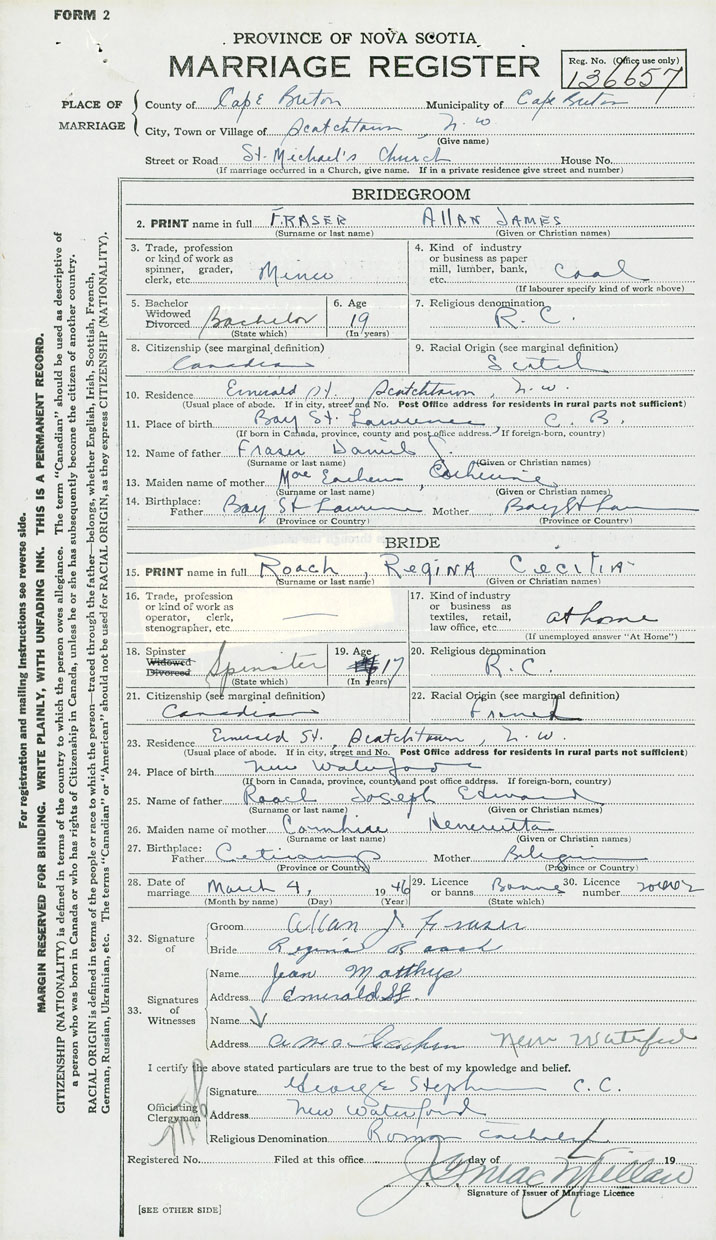 FORM 2
PROVINCE OF NOVA SCOTIA
MARRIAGE REGISTER
Reg. No. (Office use only)
136657
PLACE OF MARRIAGE
County of Cape Breton Municipality of Cape Breton
City, Town or Village of Scotchtown, N. W
(Give name)
Street or Road St. Michael's Church House No.
(If marriage occurred in a Church, give name. If in a private residence give street and number)
BRIDEGROOM
2. PRINT name in full FRASER ALLAN JAMES
(Surname or last name) (Given or Christian names)
3. Trade, profession or kind of work as spinner, grader, clerk, etc. Miner
4. Kind of industry or business as paper mill, lumber, bank, etc. Coal
(If labourer specify kind of work above)
5. Bachelor Widowed Divorced Bachelor
(State which)
6. Age 19
(In years)
7. Religious denomination R. C.
8. Citizenship (see marginal definition) Canadian
9. Racial Origin (see marginal definition) Scotch
10. Residence Emerald St., Scotchtown, N. W.
(Usual place of abode. If in city, street and No. Post Office address for residents in rural parts not sufficient)
11. Place of birth Bay St. Lawrence, C. B.
(If born in Canada, province, county and post office address. If foreign-born, country)
12. Name of father Fraser Daniel J.
(Surname or last name) (Given or Christian names)
13. Maiden name of mother Mac Eachern, Catherine
(Surname or last name) (Given or Christian names)
14. Birthplace: Father Bay St Lawrence Mother Bay St Law
(Province or Country) (Province or Country)
BRIDE
15. PRINT name in full Roach, REGINA CECILIA
(Surname or last name) (Given or Christian names)
16. Trade, profession or kind of work as operator, clerk, stenographer, etc. —
17. Kind of industry or business as textiles, retail, law office, etc. at home
(If unemployed answer "At Home")
18. Spinster Widowed Divorced Spinster
(State which)
19. Age 17
(In years)
20. Religious denomination R. C.
21. Citizenship (see marginal definition) Canadian
22. Racial Origin (see marginal definition) French
23. Residence Emerald St., Scotchtown, N. W.
(Usual place of abode. If in city, street and No. Post Office address for residents in rural parts not sufficient)
24. Place of birth New Waterford
(If born in Canada, province, county and post office address. If foreign-born, country)
25. Name of father Roach Joseph Edward
(Surname or last name) (Given or Christian names)
26. Maiden name of mother Henerietta
(Surname or last name) (Given or Christian names)
27. Birthplace: Father Mother Belgium
(Province or Country) (Province or Country)
28. Date of marriage March 4, 1946
(Month by name) (Day) (Year)
29. Licence or banns Banns
(State which)
30. Licence number
32. Signature of
Groom Allan J Fraser
Bride Regina Roach
33. Signatures of Witnesses
Name Jean Matthys
Address Emerald St.
Name
Address New Waterford
I certify the above stated particulars are true to the best of my knowledge and belief.
Officiating Clergyman
Signature George Stephen C. C.
Address New Waterford
Religious Denomination Roman Catholic
Registered No. Filed at this office day of 19
J. G. MacMillan
Signature of Issuer of Marriage Licence
[SEE OTHER SIDE]
For registration and mailing instructions see reverse side.
MARGIN RESERVED FOR BINDING. WRITE PLAINLY, WITH UNFADING INK. THIS IS A PERMANENT RECORD.
CITIZENSHIP (NATIONALITY) is defined in terms of the country to which the person owes allegiance. The term "Canadian" should be used as descriptive of
a person who was born in Canada or who has rights of Citizenship in Canada, unless he or she has subsequently become the citizen of another country.
RACIAL ORIGIN is defined in terms of the people or race to which the person—traced through the father—belongs, whether English, Irish, Scottish, French,
German, Russian, Ukrainian, etc. The terms "Canadian" or "American" should not be used for RACIAL ORIGIN, as they express CITIZENSHIP (NATIONALITY).